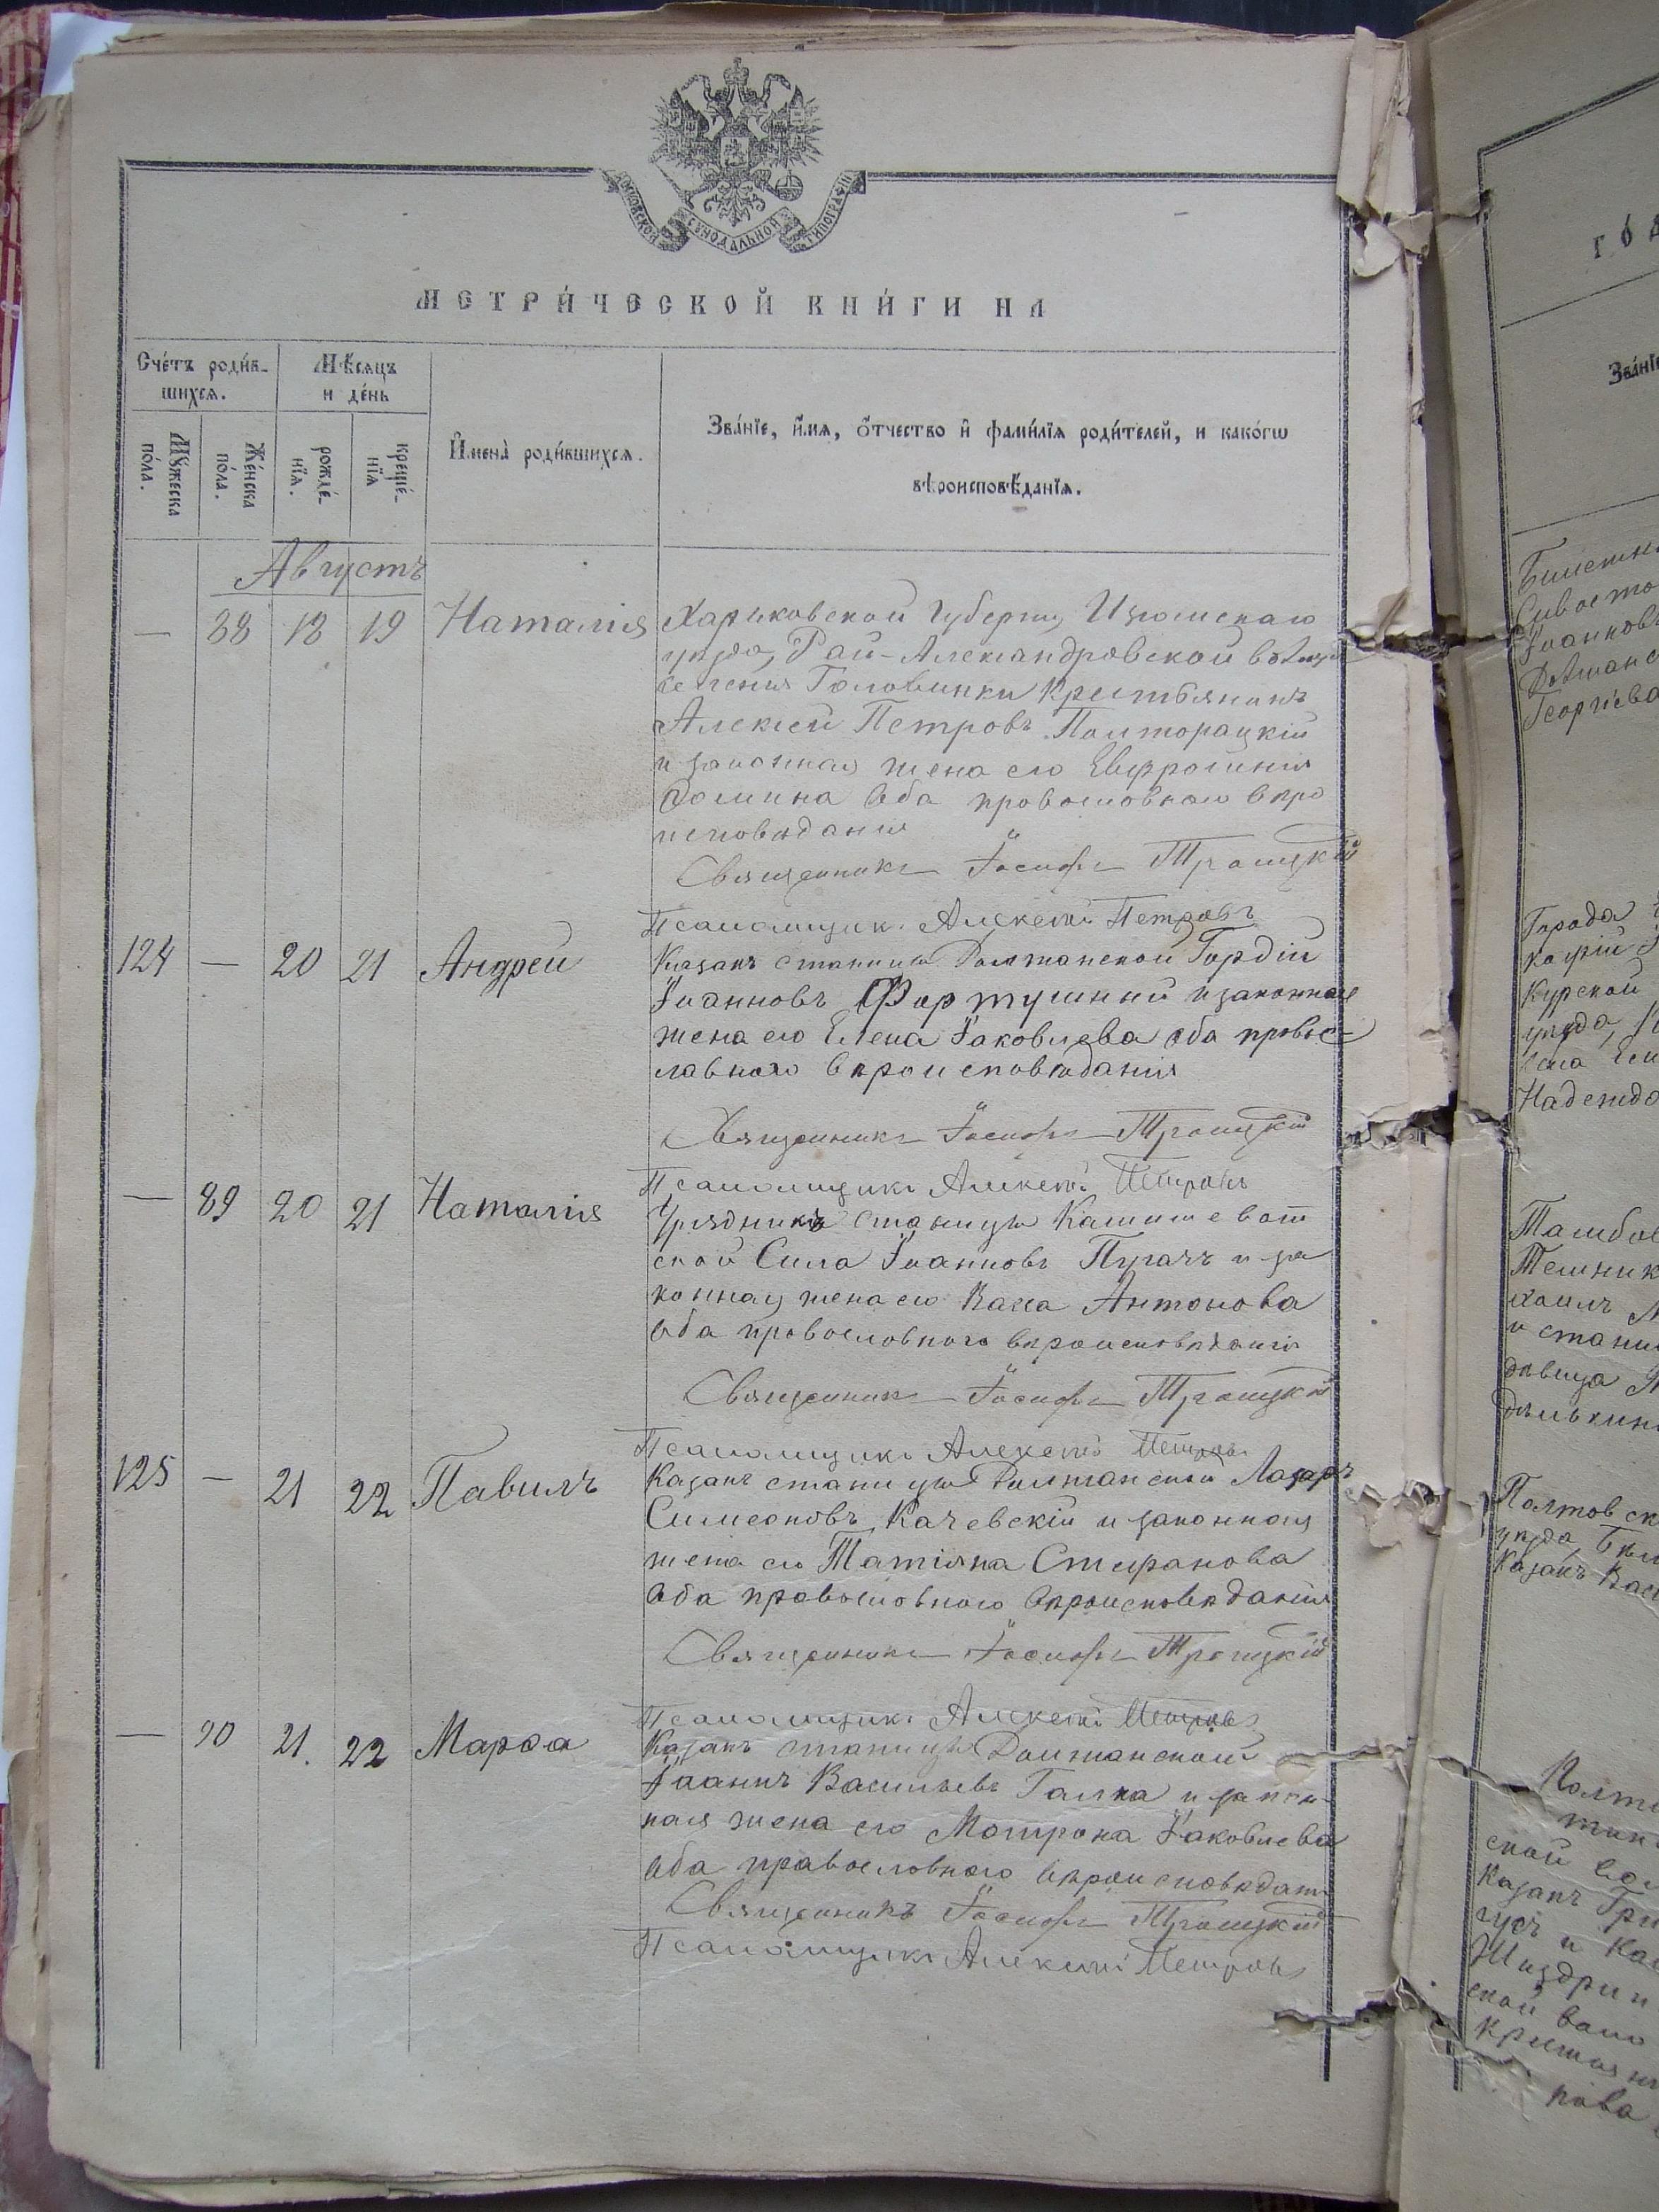 МОСКОВСКОЙ СѴНОДАЛЬНОЙ ТИПОГРАФІИ
МЕТРИ́ЧЕСКОЙ КНИ́ГИ НА
Сче́тъ роди́в-
шихсѧ.
Мѣ́сѧцъ
и де́нь
Мꙋ́жеска по́ла.
Же́нска по́ла.
рожде́-
нїѧ.
креще́-
нїѧ
И҆мена̀ роди́вшихсѧ.
Зва́нїе, и҆́мѧ, ѻ҆́тчество и҆ фами́лїѧ роди́телей, и како́гѡ
вѣроисповѣ́данїѧ.
Августъ
— 88 18 19 Наталия Харьковской губерніи, Изюмскаго
уѣзда, Рай-Александровской волости
селения Головинки крестьянинъ
Алексей Петровъ Полторацкій
и законная жена его Евфросиния
Фомина оба православнаго вѣро
исповѣдания
Священникъ Іосифъ Троицкій
Псаломщикъ Алексѣй Петровъ
124 — 20 21 Андрей Казакъ станицы Должанской Гордій
Іоанновъ Фортушный и законная
жена его Елена Іаковлева оба право
славнаго вѣроисповѣданія
Священникъ Іосифъ Троицкій
Псаломщикъ Алексѣй Петровъ
— 89 20 21 Наталия Урядникъ станицы Камишеват
ской Сила Іоанновъ Пугачъ и за
конная жена его Васса Антонова
оба православного вѣроисповѣданія
Священникъ Іосифъ Троицкій
Псаломщикъ Алексѣй Петровъ
125 — 21 22 Павилъ Казакъ станицы Должанской Лазарь
Симеоновъ Качевскій и законная
жена его Татіяна Стефанова
оба православного вѣроисповѣдания
Священникъ Іосифъ Троицкій
Псаломщикъ Алексѣй Петровъ
— 90 21. 22 Марѳа Казакъ станицы Должанской
Іоаннъ Васильевъ Галка и закон
ная жена его Матрона Іаковлева
оба православного вѣроисповѣдан
Священникъ Іосифъ Троицкій
Псаломщикъ Алексѣй Петровъ
го́д
Зва́нїе
Іоанновъ
Георгіева
Города
Курской
уѣзда,
села
Надежда
Тамбов
и стани
дѣвица
Полтовск
уѣзда,
Казакъ Вас
Полта
ской вол
Казакъ Гри
ской воло
крестьян